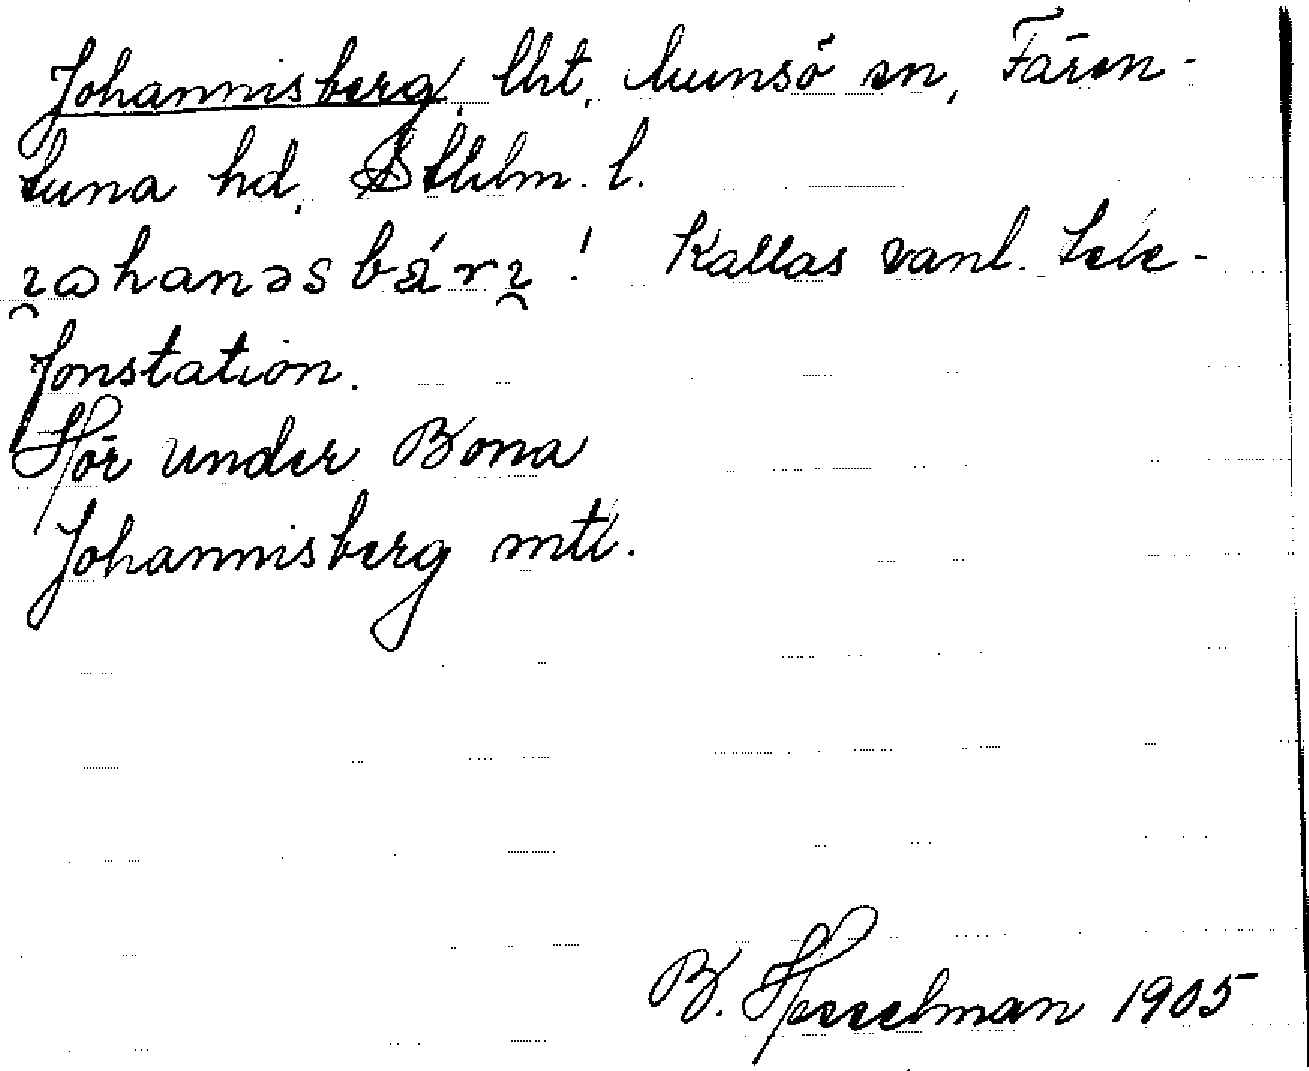 Johannisberg, lht, Munsö sn, Fären-
tuna hd, Sthlm. l.
Kallas vanl. tele-
fonstation.
Hör under Bona
Johannisberg mtl.
B. Hesselman 1905